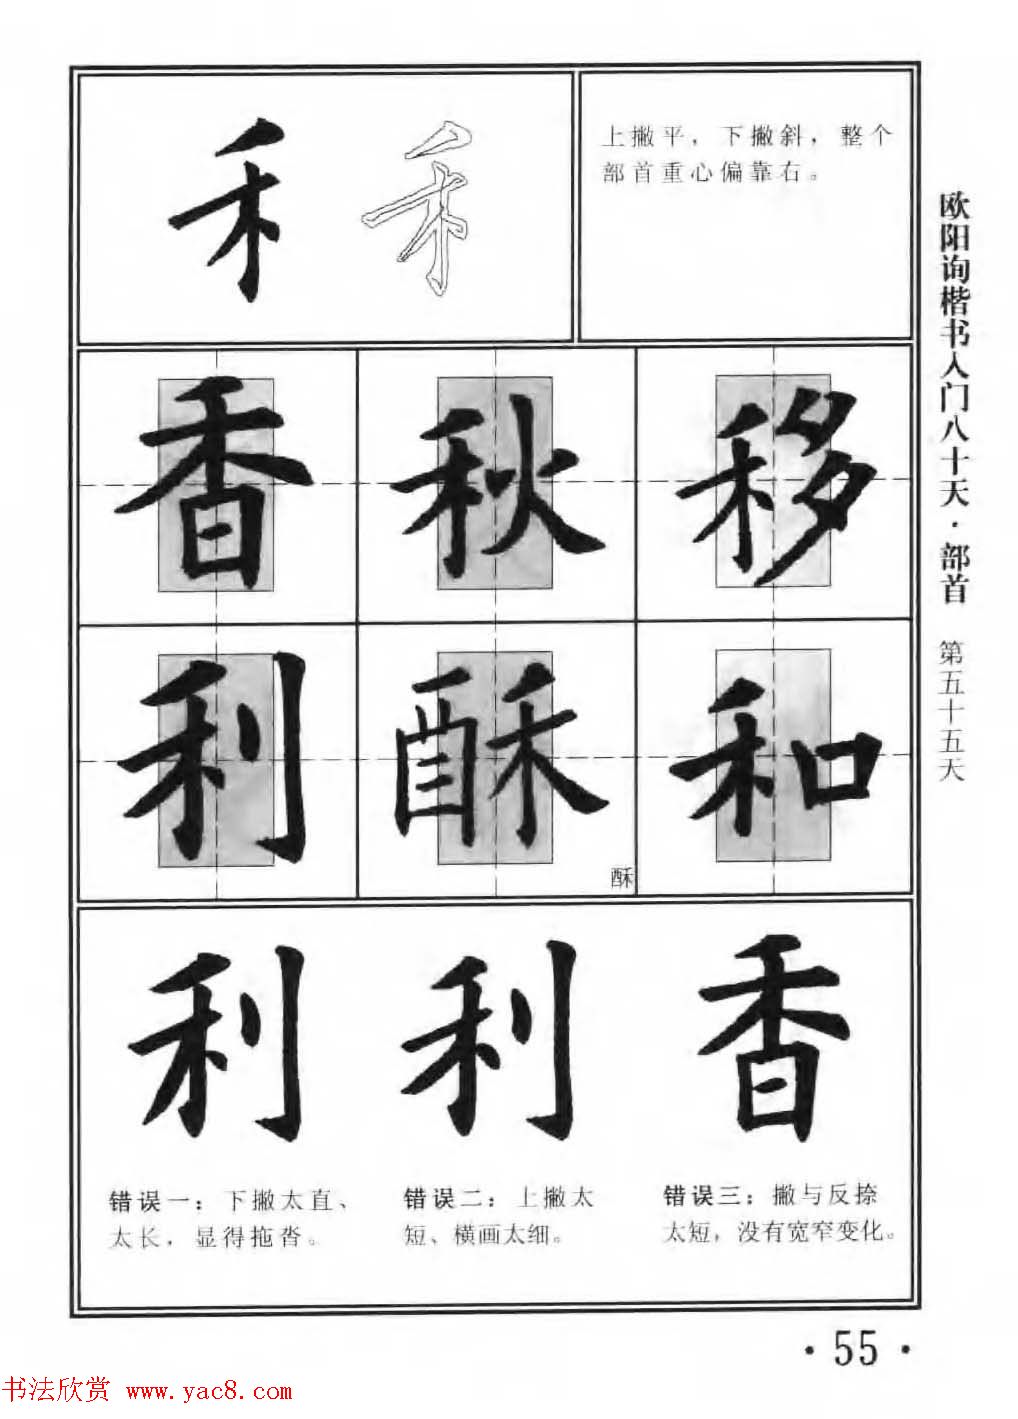 禾
禾
上撇平，下撇斜，整个
部首重心偏靠右。
香 秋 移
利 酥 和
酥
利 利 香
错误一：下撇太直、
太长，显得拖沓。
错误二：上撇太
短、横画太细。
错误三：撇与反捺
太短，没有宽窄变化。
欧阳询楷书入门八十天·部首 第五十五天
·55·
书法欣赏 www.yac8.com